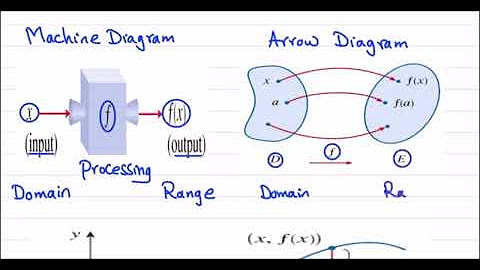 Machine Diagram
x
f
f(x)
(input)
(output)
Processing
Domain
Range
Arrow Diagram
x
f(x)
a
f(a)
D
f
E
Domain
Ra
y
(x, f(x))